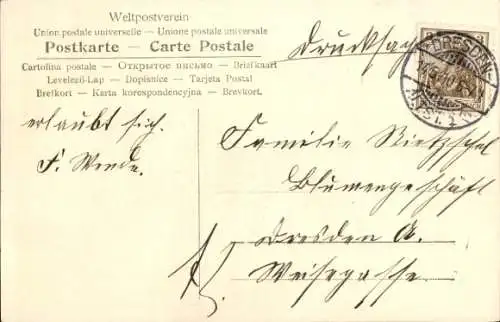 Weltpostverein
Union postale universelle – Unione postale universale
Postkarte – Carte Postale
Cartolina postale – Открытое письмо – Briefkaart
Levelező-Lap – Dopisnice – Tarjeta Postal
Brefkort – Karta korespondencyjna – Brevkort.
Drucksache
DRESDEN
erlaubt sich.
F. Wende.
Familie Nietzschel
Blumengeschäft
Dresden A.
Weissegasse.